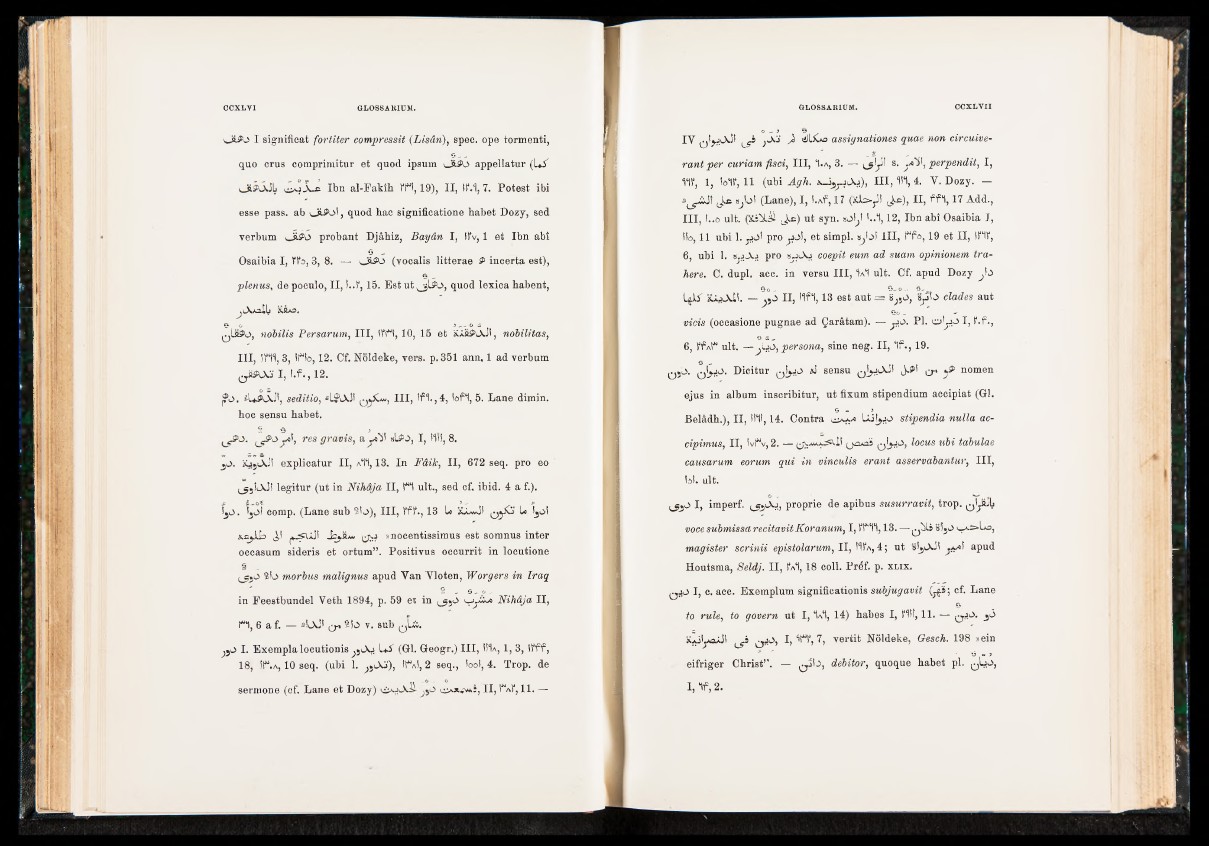 CCXLVI GLOSSARIUM.
دهق I significat fortiter compressit (Lisân), spec. ope tormenti,
quo crus comprimitur et quod ipsum دَهَق appellatur (كما
Ibn al-Fakîh ٢٣٩, 19), II, ١٢٠٩, 7. Potest ibi
esse pass. ab ادهق, quod hac significatione habet Dozy, sed
verbum دهق probant Djâhiz, Bayân I, ١٢٧, 1 et Ibn abî
Osaibia I, ٢٢٥, 3, 8. — دهق (vocalis litterae ه incerta est),
plenus, de poculo, II, ١٠٠٢, 15. Est ut دهاق, quod lexica habent,
صفة بالمصدر
دهقان, nobilis Persarum, III, ١٢٣٩, 10, 15 et الدهقنة, nobilitas,
III, ١٢٣٩, 3, ١٣١٥, 12. Cf. Nöldeke, vers. p. 351 ann. 1 ad verbum
تدهقن I, ١٠٤٠, 12.
دهم. الدهماء, seditio, سكون الدهماء, III, ١٤٩٠, 4, ١٥٤٩, 5. Lane dimin.
hoc sensu habet.
دهى. امر دهى, res gravis, a دهاه الامر, I, ١٩١١, 8.
دو. الدوية explicatur II, ٨٦٦, 13. In Fâik, II, 672 seq. pro eo
الداوى legitur (ut in Nihâja II, ٣٦ ult., sed cf. ibid. 4 a f.).
دوأ. ادوأ comp. (Lane sub داء), III, ٢٤٢٠, 13 ادوأ ما تكون السنة ما
بين سقوط النجم الى طلوعه »nocentissimus est somnus inter
occasum sideris et ortum”. Positivus occurrit in locutione
داء دوى morbus malignus apud Van Vloten, Worgers in Iraq
in Feestbundel Veth 1894, p. 59 et in مشرب دوى Nihâja II,
٣٦, 6 a f. — من الداء داء v. sub شأن.
دور I. Exempla locutionis كما يدور (Gl. Geogr.) III, ١١٦٨, 1, 3, ١٢٤٤,
18, ١٣٠٨, 10 seq. (ubi l. تدور), ١٣٨١, 2 seq., ١٥٥١, 4. Trop. de
sermone (cf. Lane et Dozy) فسمعت دور الحديث, II, ٣٨٢, 11. —
GLOSSARIUM. CCXLVII
IV صكاك لم تدر فى الديوان assignationes quae non circuive-
rant per curiam fisci, III, ٦٠٨, 3. — الرأى s. الامر, perpendit, I,
٦٩٢, 1, ١٥٩٢, 11 (ubi Agh. يديرونه), III, ٩٦, 4. V. Dozy. —
اداره على الشىء (Lane), I, ١٠٨٤, 17 (على الرحلة), II, ٤٤٦, 17 Add.,
III, ١٠٠٥ ult. (على الخلافة) ut syn. اراده ١٠٠٦, 12, Ibn abi Osaibia I,
١١٥, 11 ubi l. ادير pro ادبر, et simpl. اداره III, ١٣٤٥, 19 et II, ١٢٦٢,
6, ubi l. يديره pro يدبره coepit eum ad suam opinionem tra-
here. C. dupl. acc. in versu III, ٦٨٦ ult. Cf. apud Dozy دار
المدينة كلها. — دور II, ١٩٤٩, 13 est aut = دورة, دائرة clades aut
vicis (occasione pugnae ad Çarâtam). — دير. Pl. ديرات I, ٢٠٤٠,
6, ٢٤٨٣ ult. — ديار, persona, sine neg. II, ٦٤٠, 19.
دون. ديوان. Dicitur له ديوان sensu هو من اهل الديوان nomen
ejus in album inscribitur, ut fixum stipendium accipiat (Gl.
Belâdh.), II, ١٢٩١, 14. Contra ديواننا ميت stipendia nulla ac-
cipimus, II, ١٧٣٧, 2. — ديوان قصص المحبسين, locus ubi tabulae
causarum eorum qui in vinculis erant asservabantur, III,
١٥١٠ ult.
دوى I, imperf. يدوى, proprie de apibus susurravit, trop. بالقرآن
voce submissa recitavit Koranum, I, ٢٣٦٩, 13. — صاحب دواة فلان,
magister scrinii epistolarum, II, ١٩٢٨, 4; ut امير الدواة apud
Houtsma, Seldj. II, ٢٨٩, 18 coll. Préf. p. XLIX.
دين I, c. acc. Exemplum significationis subjugavit (قهر; cf. Lane
to rule, to govern ut I, ٩٨٩, 14) habes I, ٢٩١١, 11. — دين. ذو
دين فى النصرانية, I, ٩٢٢, 7, vertit Nöldeke, Gesch. 198 »ein
eifriger Christ”. — دائن, debitor, quoque habet pl. ديان,
I, ٩٤, 2.